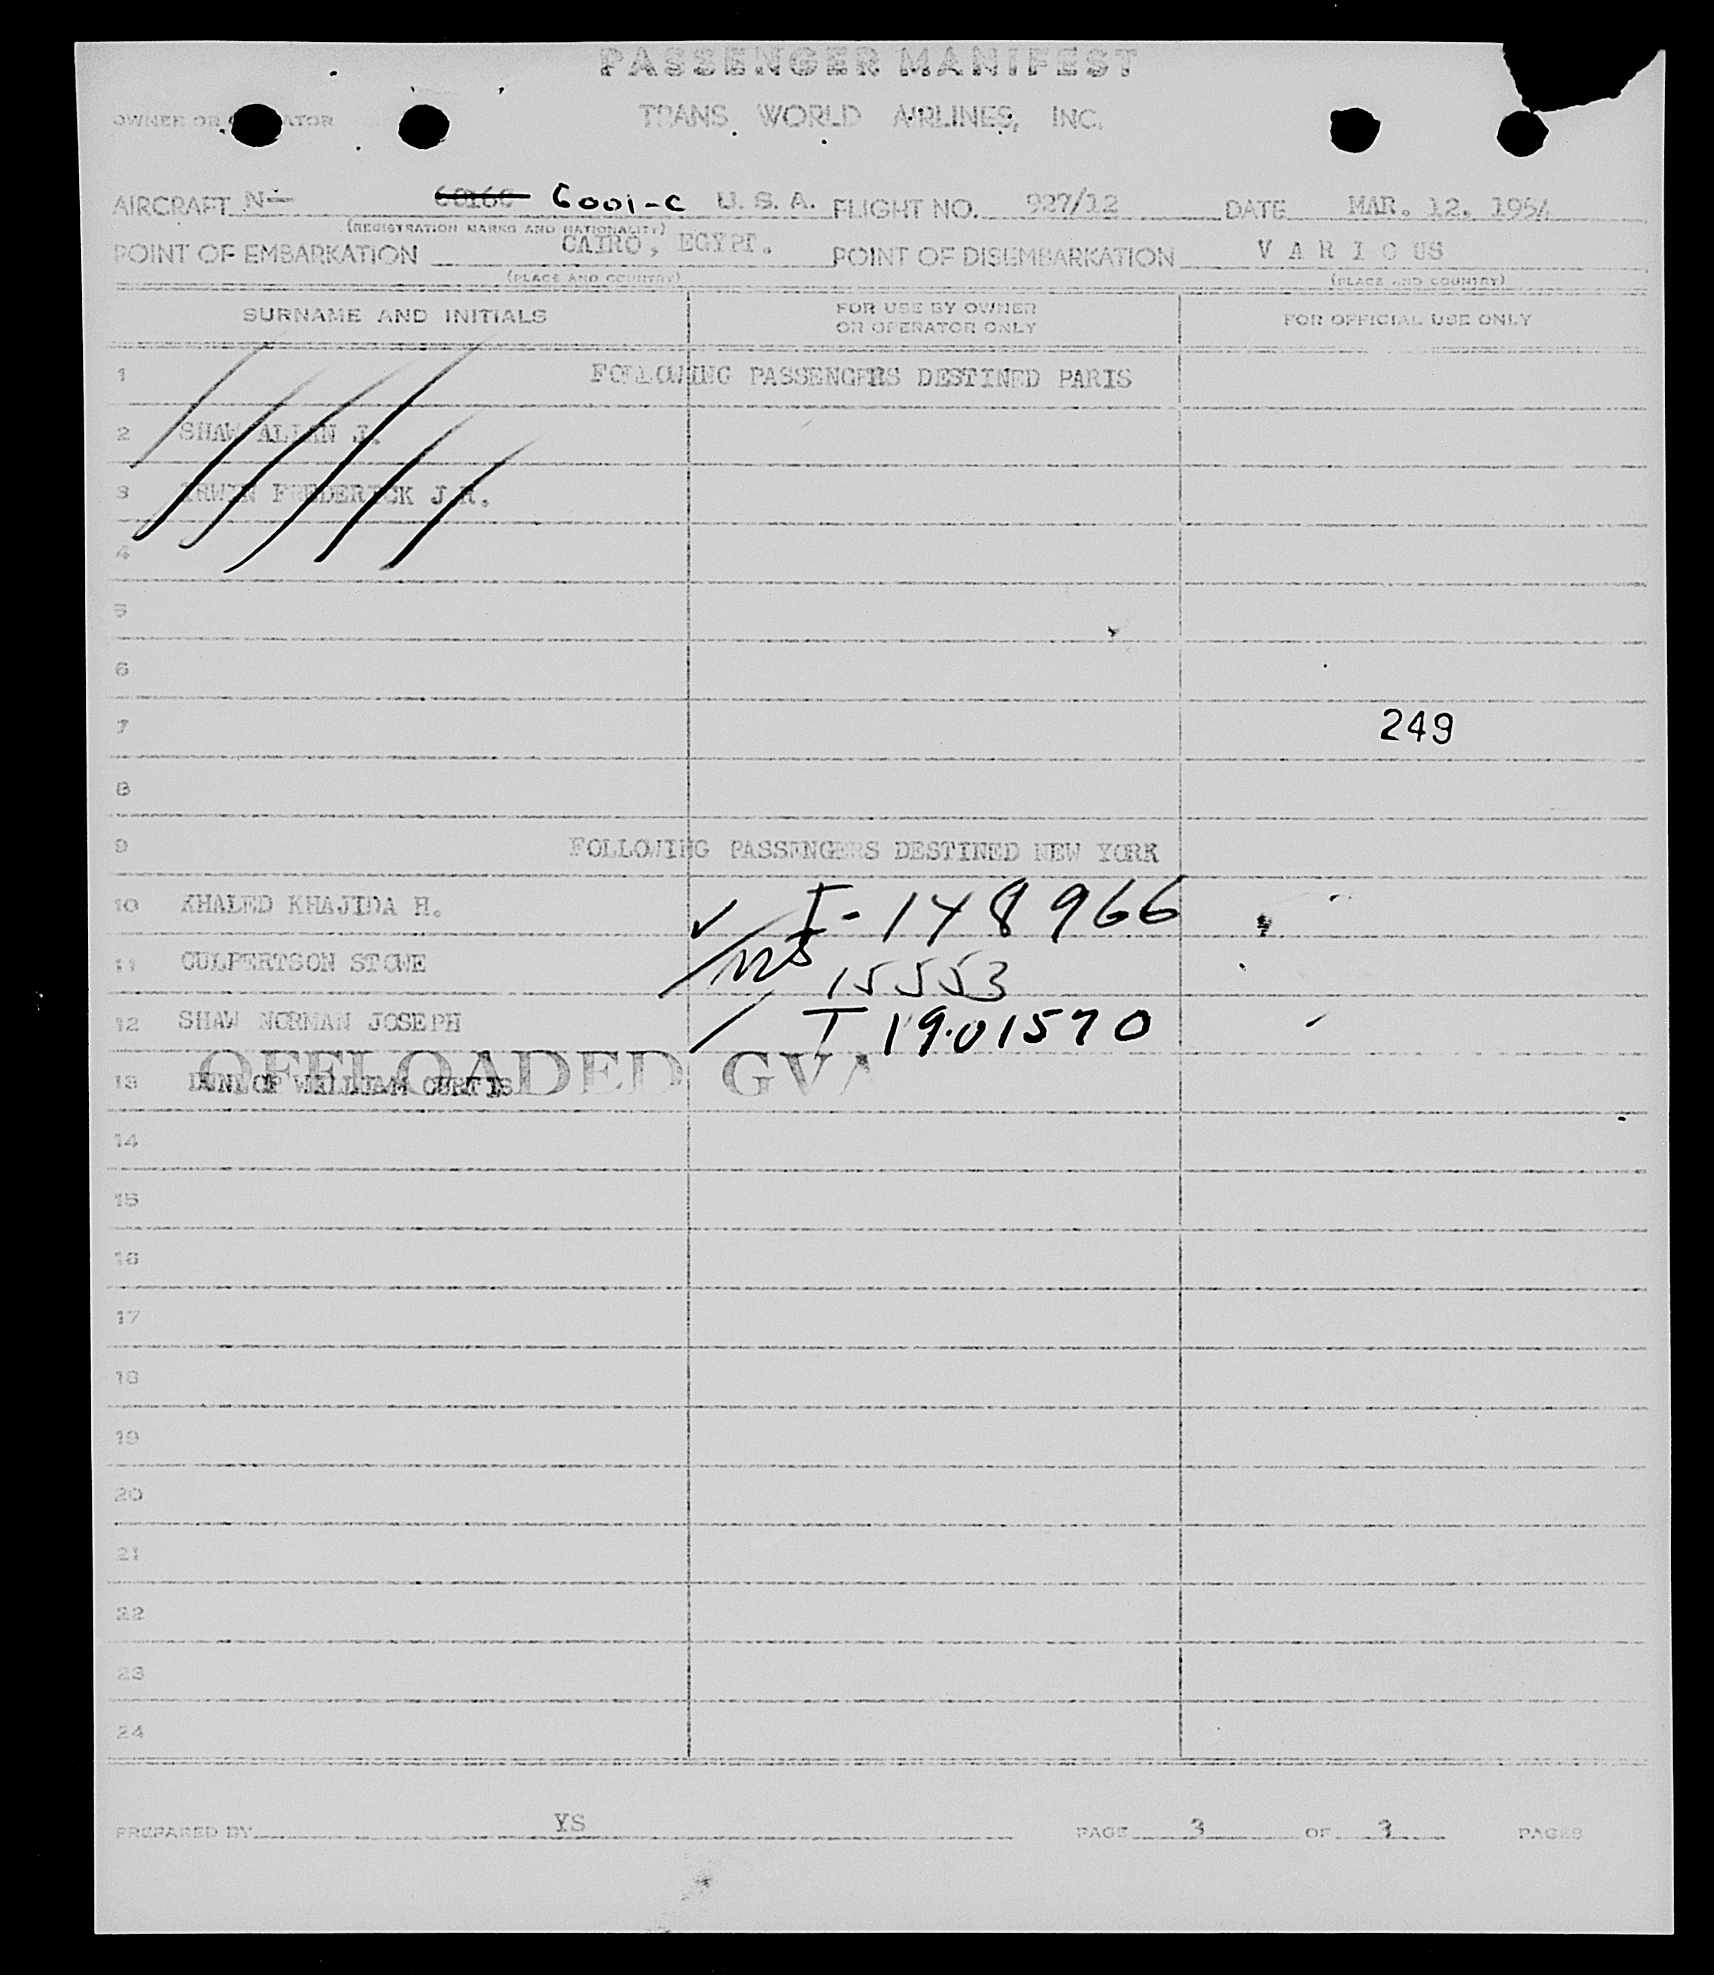 PASSENGER MANIFEST
OWNER OR OPERATOR TRANS WORLD AIRLINES, INC.
AIRCRAFT N- 6016C 6001-C U. S. A. FLIGHT NO. 927/12 DATE MAR. 12, 1954
(REGISTRATION MARKS AND NATIONALITY)
POINT OF EMBARKATION CAIRO, EGYPT. POINT OF DISEMBARKATION V A R I O US
(PLACE AND COUNTRY) (PLACE AND COUNTRY)
SURNAME AND INITIALS FOR USE BY OWNER OR OPERATOR ONLY FOR OFFICIAL USE ONLY
1 FOLLOWING PASSENGERS DESTINED PARIS
2 SHAW ALLAN J.
3 IRWIN FREDERICK J.R.
4
5
6
7 249
8
9 FOLLOWING PASSENGERS DESTINED NEW YORK
10 KHALED KHAJIDA H. ✓ I-148966
11 CULPERTSON STOWE 15553
12 SHAW NORMAN JOSEPH T 1901570
OFFLOADED GVA
13 DUNLOP WILLIAM CURTIS
14
15
16
17
18
19
20
21
22
23
24
PREPARED BY YS PAGE 3 OF 3 PAGES